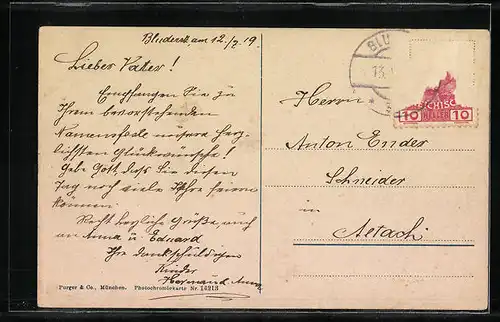 Bludesch am 12./7. 19.
Lieber Vater!
Empfangen Sie zu
Ihrem bevorstehenden
Namensfeste unsere herz-
lichsten Glückwünsche!
Gebe Gott, dass Sie diesen
Tag noch viele Jahre feiern
können.
Recht herzliche Grüße, auch
an Anna u. Eduard
Ihre dankschuldigen
Kinder
Hermann u. Anna
Purger & Co., München. Photochromiekarte Nr. 14213
BLU
13.
CHISC
10 HELLER 10
Herrn
Anton Ender
Schneider
in
Altach